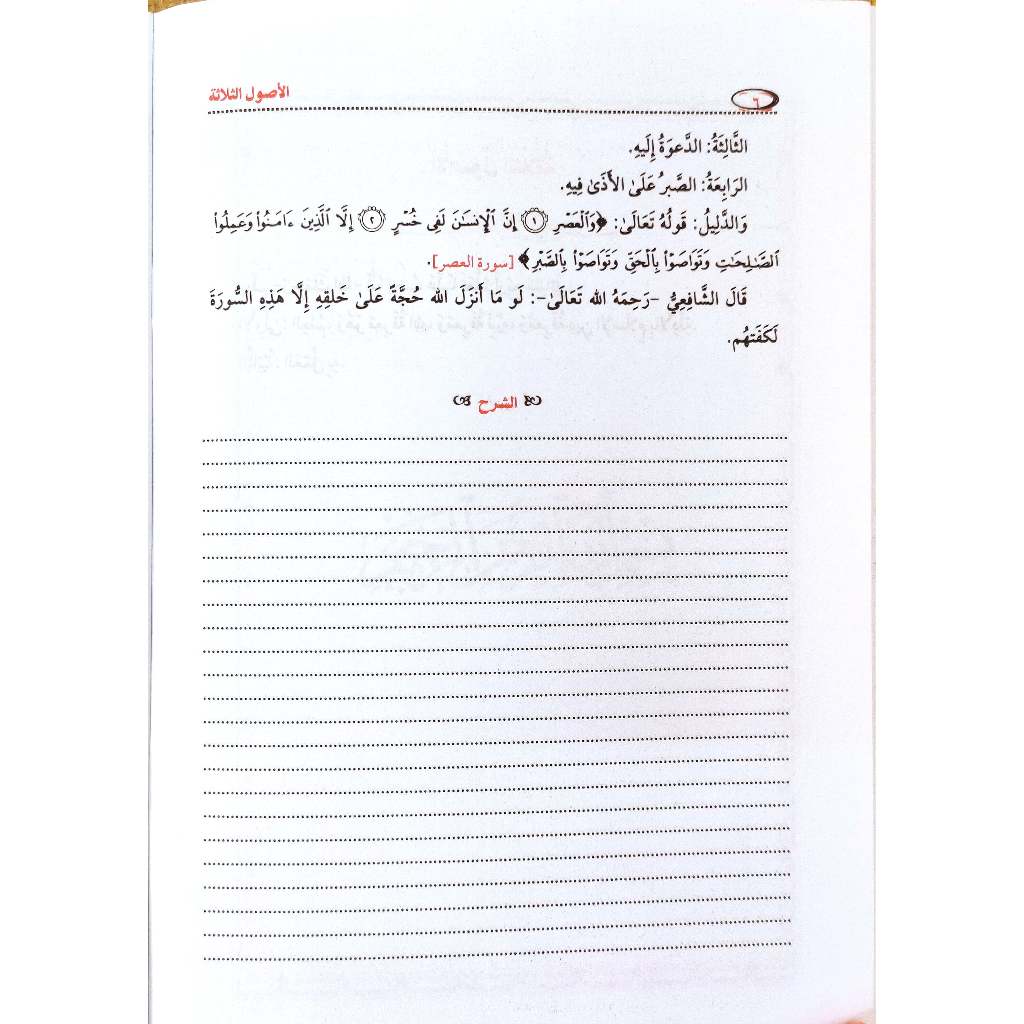 ٦
الأصول الثلاثة
الثَّالِثَةُ: الدَّعوَةُ إِلَيهِ.
الرَابِعَةُ: الصَّبرُ عَلَىٰ الأَذَىٰ فِيهِ.
وَالدَّلِيلُ: قَولُهُ تَعَالَىٰ: ﴿وَٱلۡعَصۡرِ ۝١ إِنَّ ٱلۡإِنسَٰنَ لَفِي خُسۡرٍ ۝٢ إِلَّا ٱلَّذِينَ ءَامَنُواْ وَعَمِلُواْ
ٱلصَّٰلِحَٰتِ وَتَوَاصَوۡاْ بِٱلۡحَقِّ وَتَوَاصَوۡاْ بِٱلصَّبۡرِ﴾ [سورة العصر].
قَالَ الشَّافِعِيُّ –رَحِمَهُ الله تَعَالَىٰ–: لَو مَا أَنزَلَ الله حُجَّةً عَلَىٰ خَلقِهِ إِلَّا هَذِهِ السُّورَةَ
لَكَفَتهُم.
الشرح